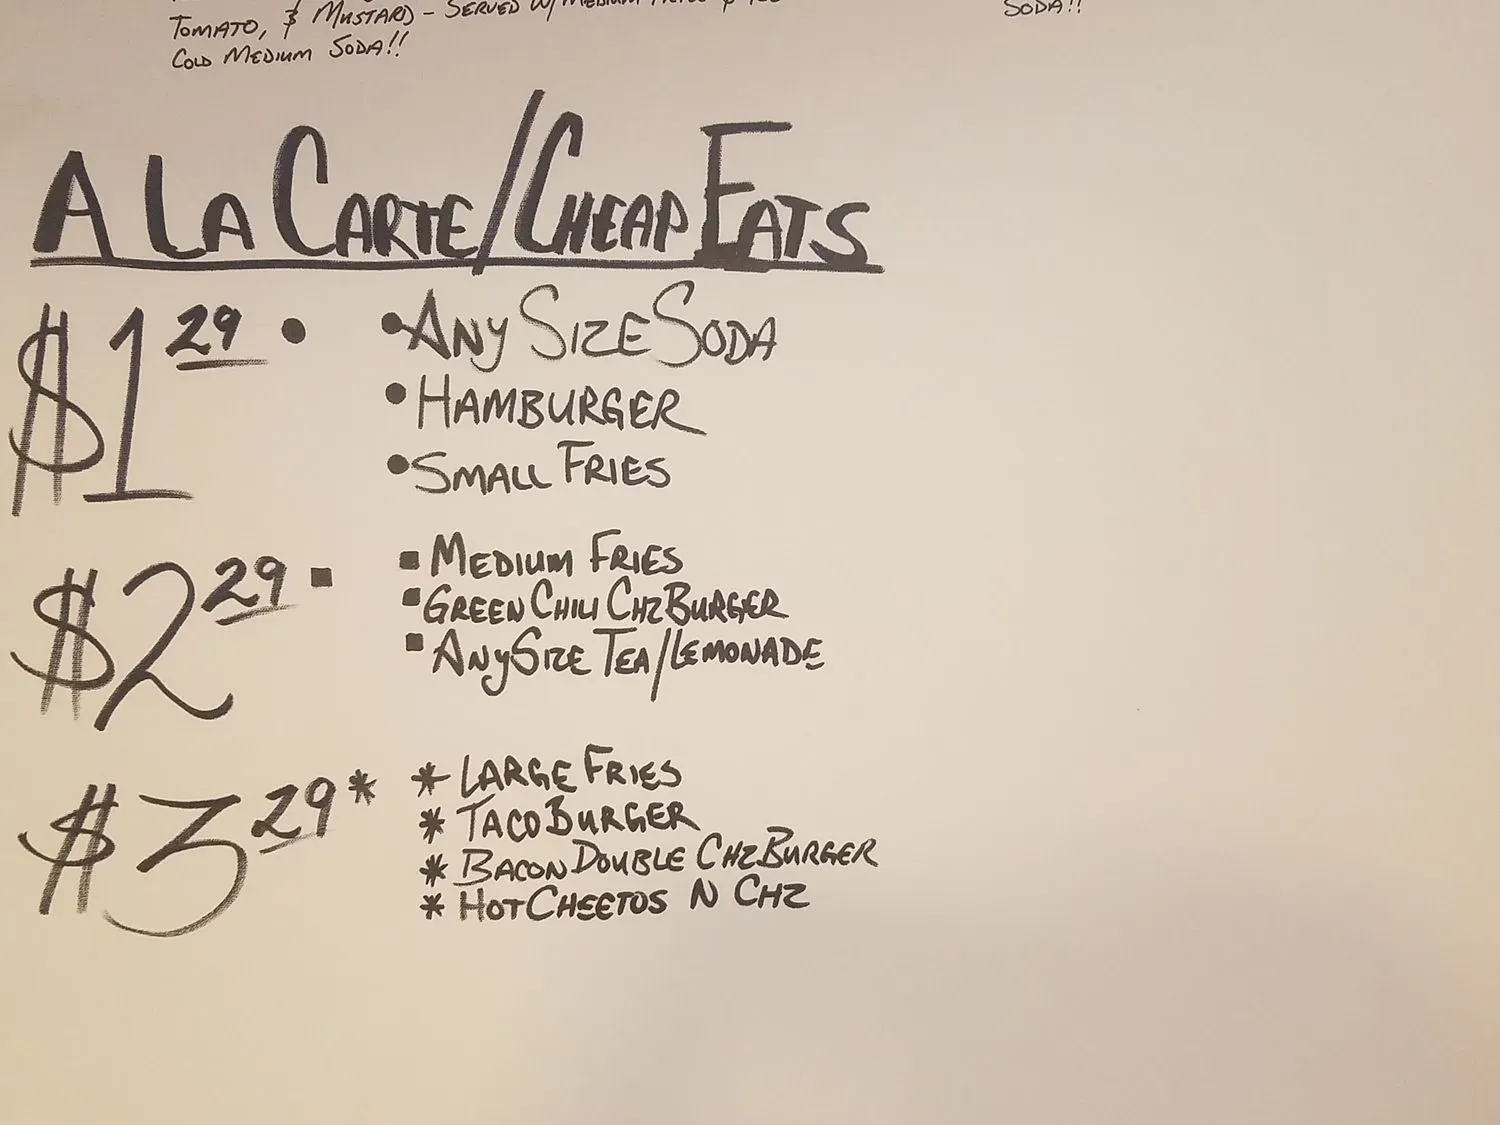 TOMATO, & MUSTARD - SERVED W/ MEDIUM FRIES &
SODA!!
COLD MEDIUM SODA!!
A LA CARTE/CHEAP EATS
$1 29 • • ANY SIZE SODA
• HAMBURGER
• SMALL FRIES
$2 29 ▪ ▪ MEDIUM FRIES
▪ GREEN CHILI CHZ BURGER
▪ ANY SIZE TEA/LEMONADE
$3 29 * * LARGE FRIES
* TACO BURGER
* BACON DOUBLE CHZ BURGER
* HOT CHEETOS N CHZ